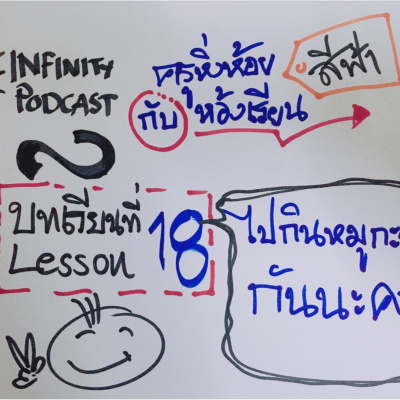 INFINITY
PODCAST
ครูหิ่งห้อย
กับ ห้องเรียน
สีฟ้า
บทเรียนที่
Lesson 18
ไปกินหมูกะ
กันนะค